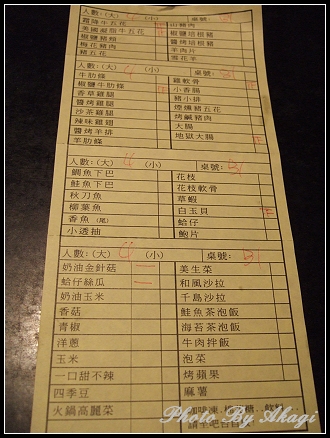 人數:(大) 4 (小) 桌號: B1
霜降牛五花 山豬肉
美國凝脂牛五花 椒鹽培根豬
椒鹽豬頰 醬烤培根豬
梅花豬肉 羊肉片
豬五花 雪花羊
人數:(大) 4 (小) 桌號: B1
牛肋條 雞軟骨
椒鹽牛肋條 小香腸
香草雞腿 豬小排
醬烤雞腿 煙燻豬五花
沙茶雞腿 烤鹹豬肉
辣味雞翅 大腸
醬烤羊排 地獄大腸
羊肋條
人數:(大) 4 (小) 桌號: B1
鯛魚下巴 花枝
鮭魚下巴 花枝軟骨
秋刀魚 草蝦
柳葉魚 白玉貝
香魚 (尾) 蛤仔
小透抽 鮑片
人數:(大) 4 (小) 桌號: B1
奶油金針菇 二 美生菜
蛤仔絲瓜 二 和風沙拉
奶油玉米 千島沙拉
香菇 鮭魚茶泡飯
青椒 海苔茶泡飯
洋蔥 牛肉拌飯
玉米 泡菜
一口甜不辣 烤蘋果
四季豆 麻薯
火鍋高麗菜
請至吧台自
Photo By Akagi